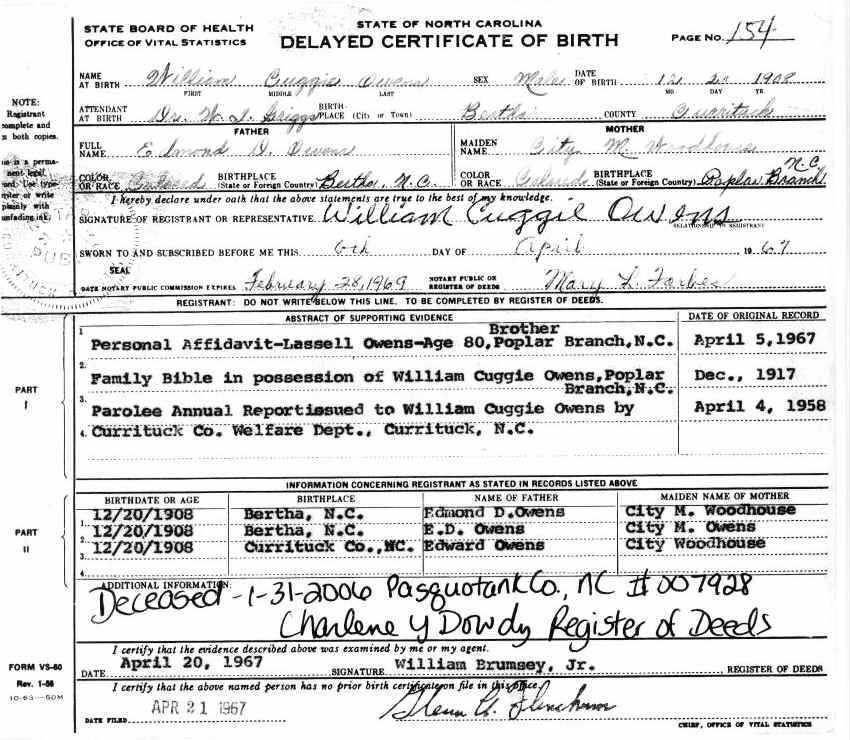 STATE BOARD OF HEALTH
OFFICE OF VITAL STATISTICS
STATE OF NORTH CAROLINA
DELAYED CERTIFICATE OF BIRTH
PAGE No. 154
NAME AT BIRTH William Cuggie Owens SEX Male DATE OF BIRTH 12 20 1908
FIRST MIDDLE LAST MO DAY YR.
NOTE:
Registrant
complete and
n both copies.
ATTENDANT AT BIRTH Dr. W. T. Griggs BIRTH-PLACE (City or Town) Bertha COUNTY Currituck
FATHER MOTHER
FULL NAME Edmond D. Owens MAIDEN NAME City M. Woodhouse
COLOR OR RACE Colored BIRTHPLACE (State or Foreign Country) Bertha, N.C. COLOR OR RACE Colored BIRTHPLACE (State or Foreign Country) Poplar Branch N.C.
is a perma-
nent legal
ord. Use type-
riter or write
plainly with
unfading ink.
I hereby declare under oath that the above statements are true to the best of my knowledge.
SIGNATURE OF REGISTRANT OR REPRESENTATIVE William Cuggie Owens
RELATIONSHIP TO REGISTRANT
SWORN TO AND SUBSCRIBED BEFORE ME THIS 6th DAY OF April 1967
SEAL
DATE NOTARY PUBLIC COMMISSION EXPIRES February 28, 1969 NOTARY PUBLIC OR REGISTER OF DEEDS Mary L. Forbes
REGISTRANT: DO NOT WRITE BELOW THIS LINE. TO BE COMPLETED BY REGISTER OF DEEDS.
PART I
ABSTRACT OF SUPPORTING EVIDENCE DATE OF ORIGINAL RECORD
Brother
1. Personal Affidavit-Lassell Owens-Age 80, Poplar Branch, N.C. April 5, 1967
2. Family Bible in possession of William Cuggie Owens, Poplar Dec., 1917
Branch, N.C.
3. Parolee Annual Report issued to William Cuggie Owens by April 4, 1958
4. Currituck Co. Welfare Dept., Currituck, N.C.
PART II
INFORMATION CONCERNING REGISTRANT AS STATED IN RECORDS LISTED ABOVE
BIRTHDATE OR AGE BIRTHPLACE NAME OF FATHER MAIDEN NAME OF MOTHER
1. 12/20/1908 Bertha, N.C. Edmond D. Owens City M. Woodhouse
2. 12/20/1908 Bertha, N.C. E.D. Owens City M. Owens
3. 12/20/1908 Currituck Co., NC. Edward Owens City Woodhouse
4.
ADDITIONAL INFORMATION:
Deceased - 1-31-2006 Pasquotank Co., NC # 007928
Charlene Y Dowdy Register of Deeds
I certify that the evidence described above was examined by me or my agent.
DATE April 20, 1967 SIGNATURE William Brumsey, Jr. REGISTER OF DEEDS
FORM VS-60
Rev. 1-56
10-63-50M
I certify that the above named person has no prior birth certificate on file in this office.
DATE FILED APR 21 1967
CHIEF, OFFICE OF VITAL STATISTICS